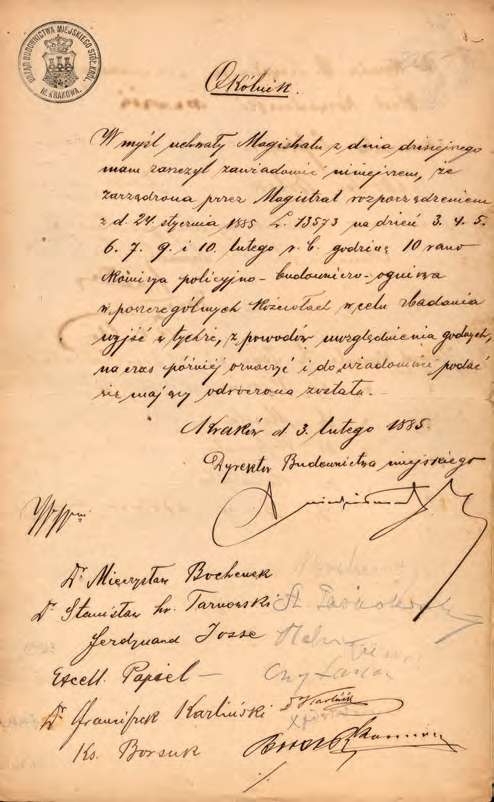 URZĄD BUDOWNICTWA MIEJSKIEGO STOŁ. KRÓL. M. KRAKOWA.
Okólnik.
W myśl uchwały Magistratu z dnia dzisiejszego
mam zaszczyt zawiadomić niniejszem, że
zarządzona przez Magistrat rozporządzeniem
z d. 24 stycznia 1885 L. 13573 na dzień 3. 4. 5.
6. 7. 9. i 10. lutego r. b. godzinę 10 rano
Komisya policyjno-budowniczo-ogniowa
w poszczególnych Kościołach w celu zbadania
wyjść z tychże, z powodów uwzględnienia godnych,
na czas później oznaczyć i do wiadomości podać
się mający odroczona została.
Kraków d 3. lutego 1885.
Dyrektor Budownictwa miejskiego
Dr Mieczysław Bochenek
Dr Stanisław hr. Tarnowski
Ferdynand Josse
Excell. Papiel
Dr Franciszek Karliński
Ks. Borsuk